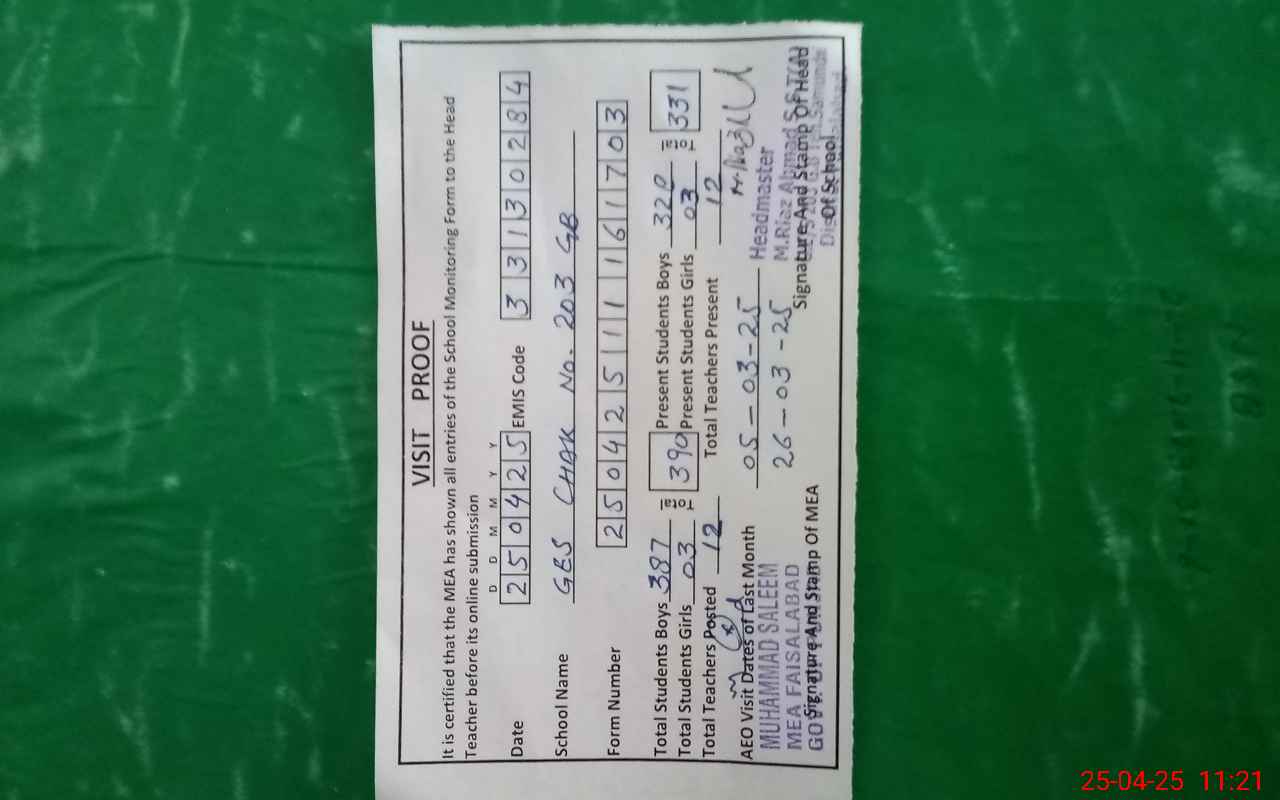 VISIT PROOF
It is certified that the MEA has shown all entries of the School Monitoring Form to the Head
Teacher before its online submission
D D M M Y Y
Date 250425 EMIS Code 33130284
School Name GES CHAK No. 203 GB
Form Number 25042511161703
Total Students Boys 387 Total 390 Present Students Boys 328 Total 331
Total Students Girls 03 Present Students Girls 03
Total Teachers Posted 12 Total Teachers Present 12
AEO Visit Dates of Last Month 05-03-25
26-03-25
MUHAMMAD SALEEM
MEA FAISALABAD
Signature And Stamp Of MEA
Headmaster
M.Riaz Ahmad S.S.T
Signature And Stamp Of Head
Of School
25-04-25 11:21